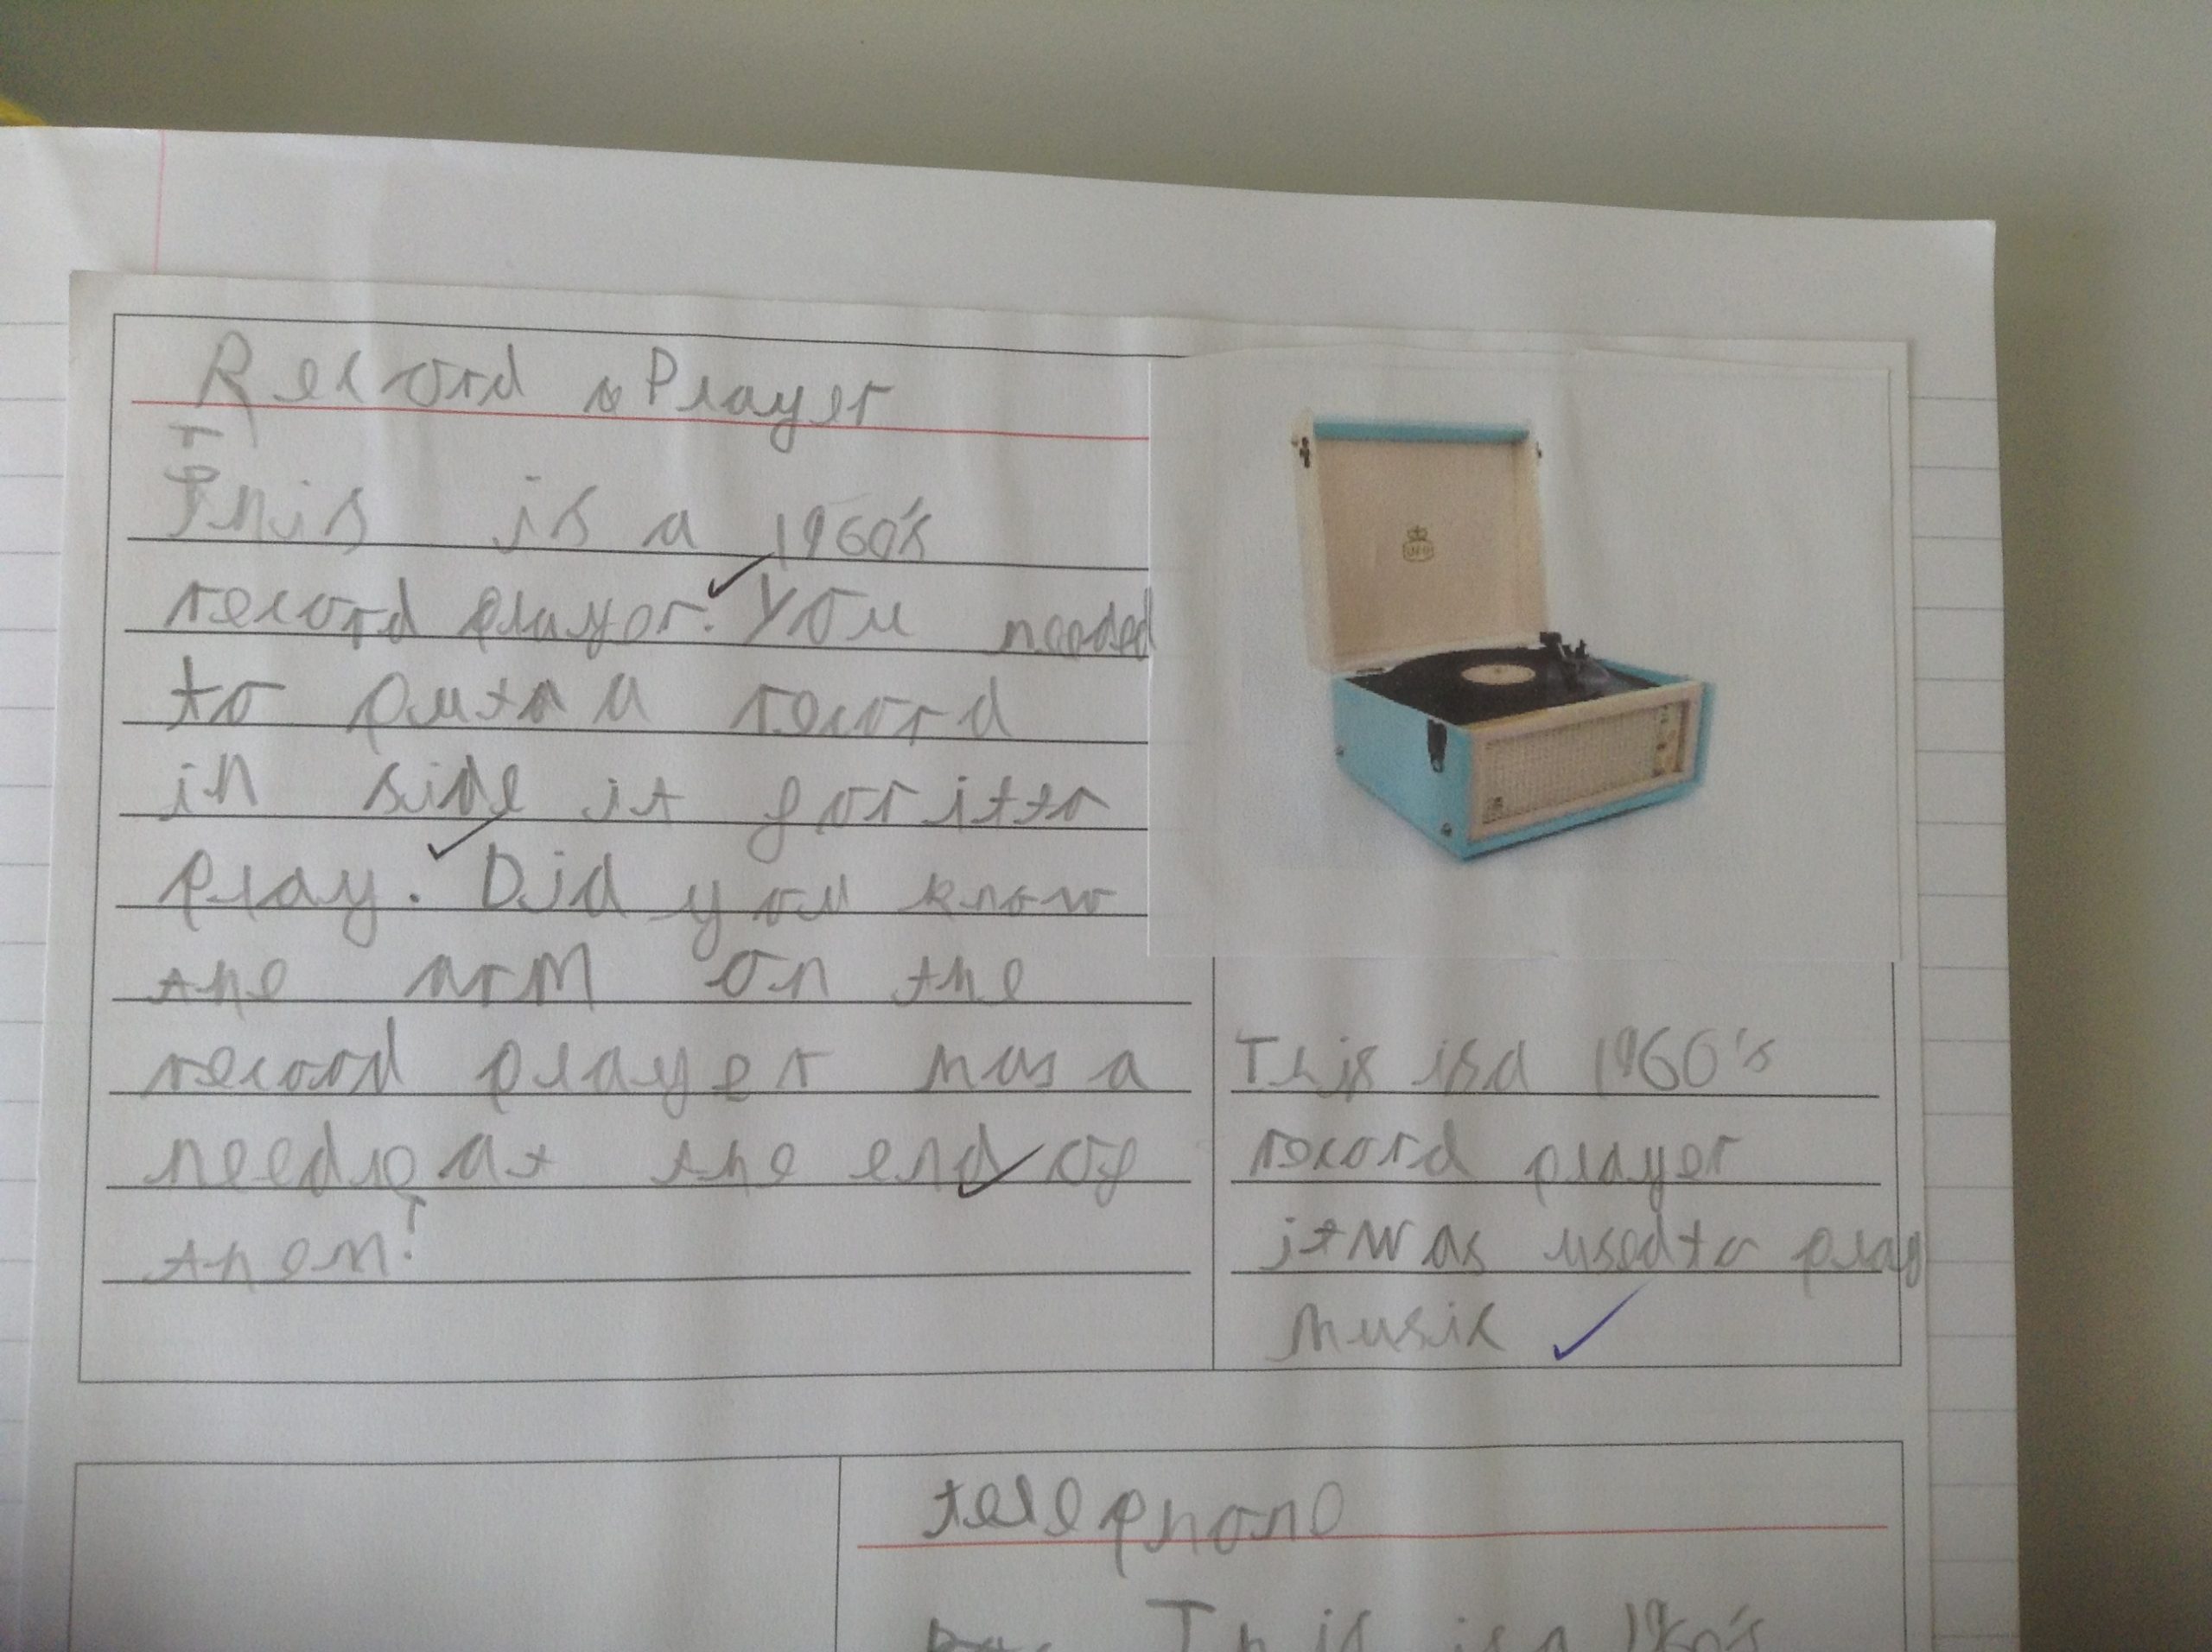 Record Player
This is a 1960's
record player. You needed
to put a record
in side it for it to
play. Did you know
the arm on the
record player has a
needle at the end of
them!
This is a 1960's
record player
it was used to play
music
telephone
This is a 1960's